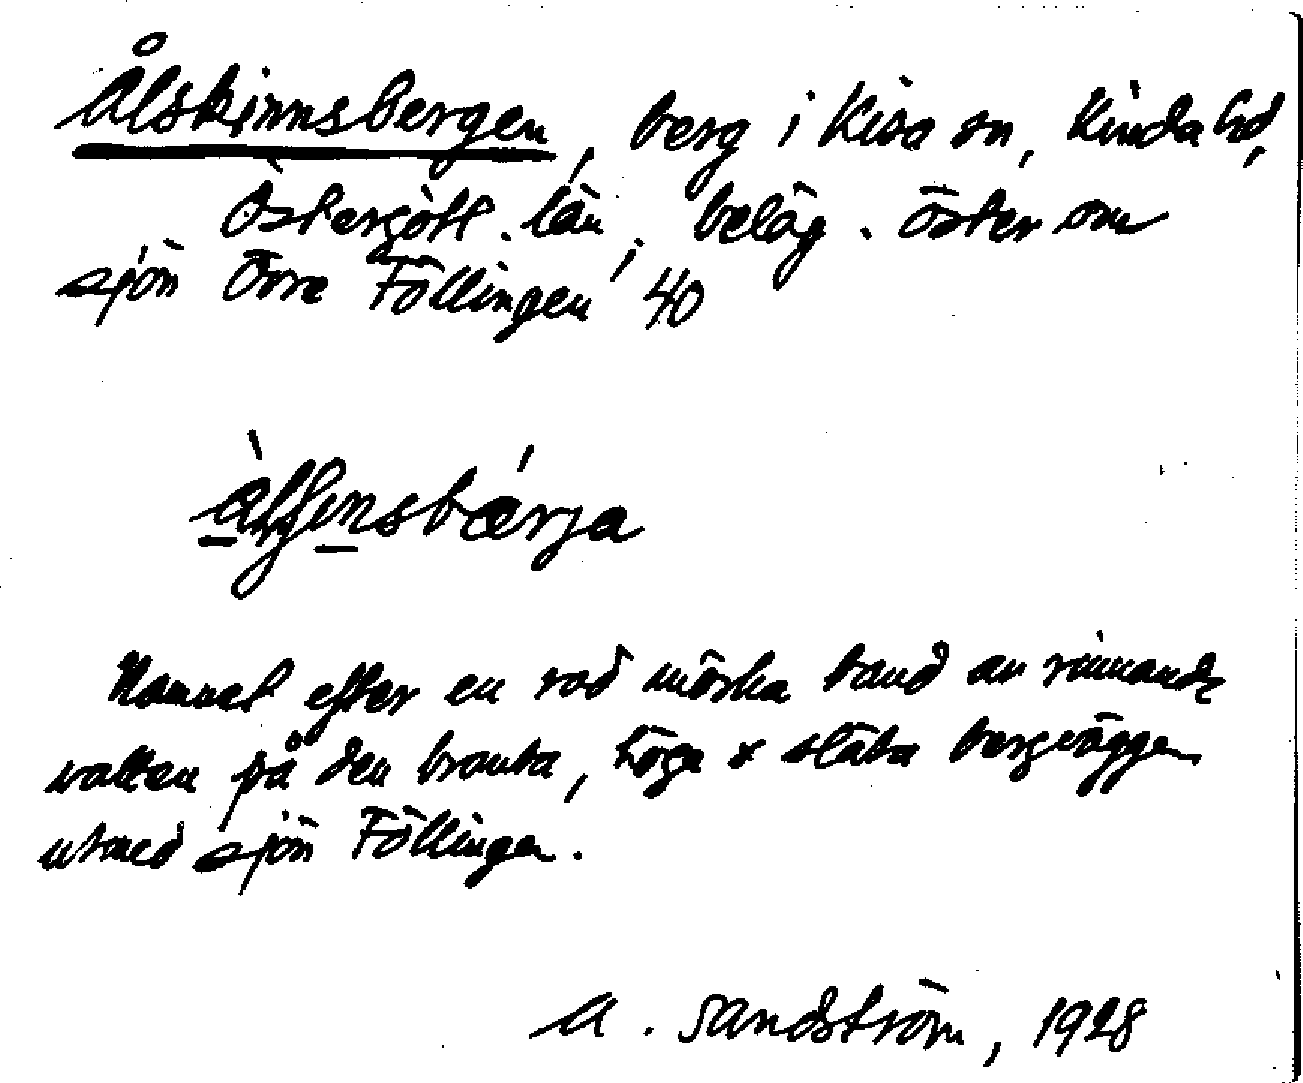 Ålskinnsbergen, berg i Kisa sn, Kinda hd,
Östergötl. län, beläg. öster om
sjön Övre Föllingen 40
Namnet efter en rad mörka band av rinnande
vatten på den branta, höga & släta bergväggen
utmed sjön Föllingen.
A. Sandström, 1928